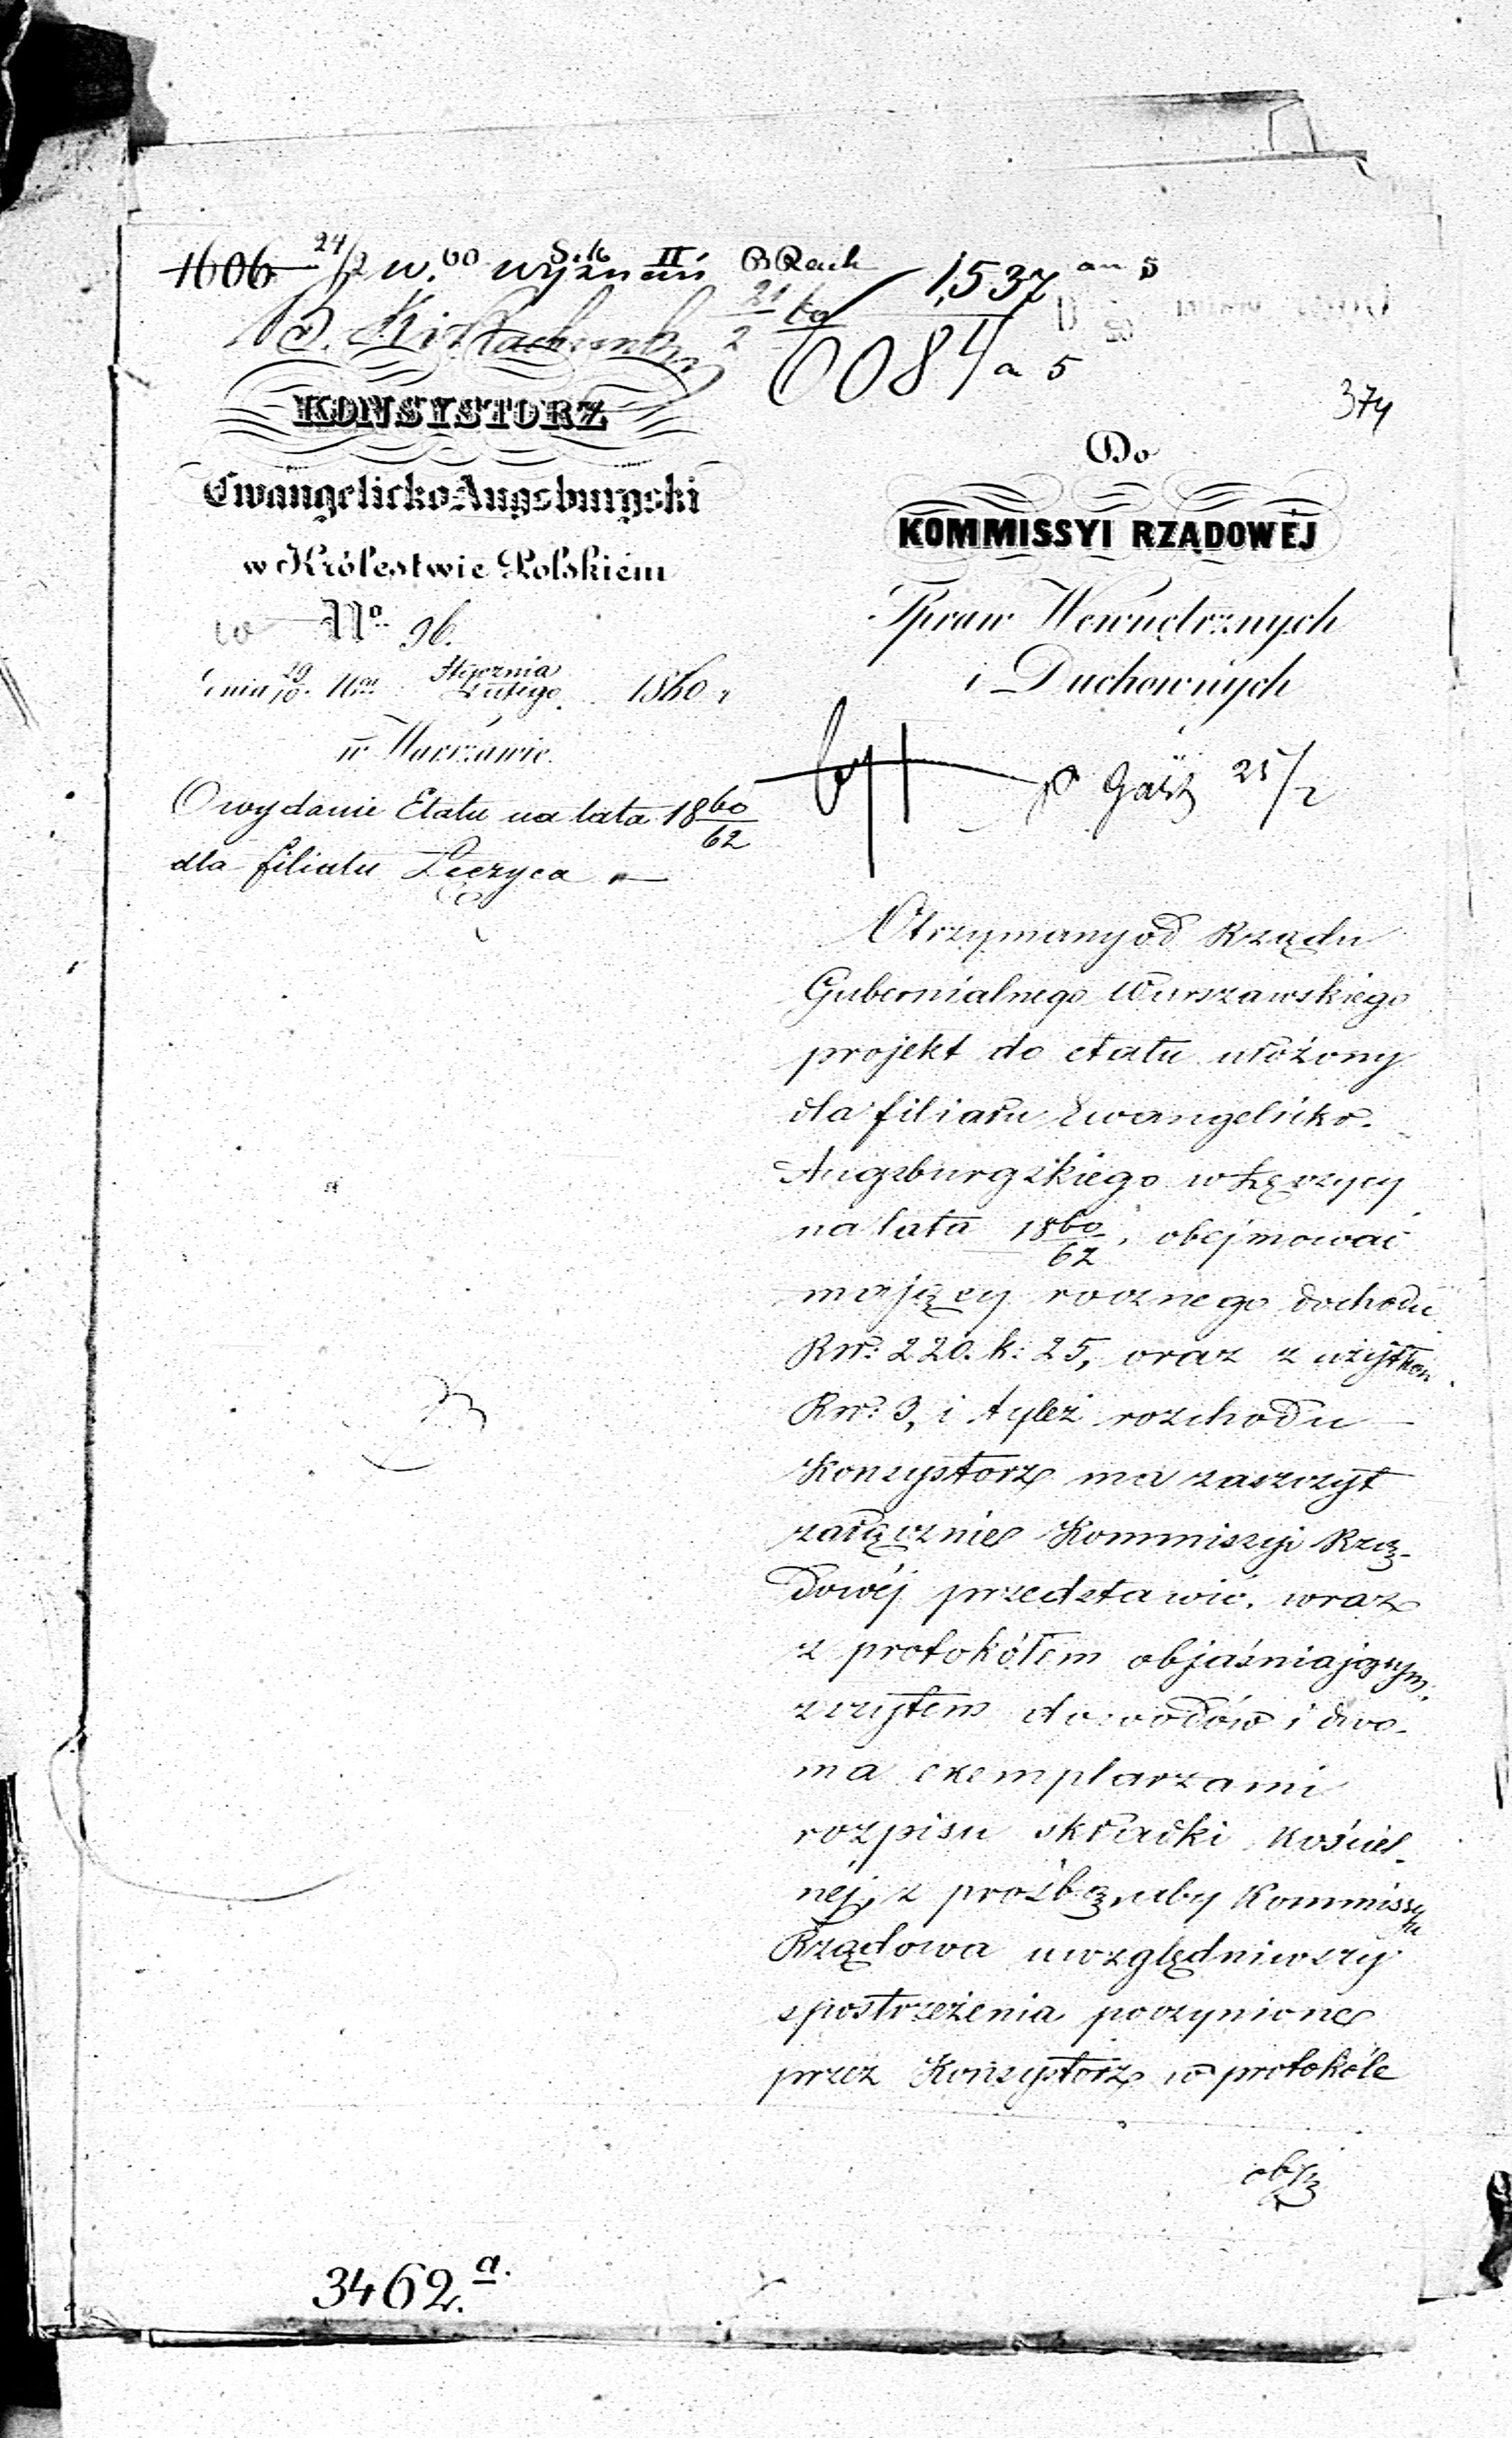 1606 24/2 w. wyznań Sek II B Rach 1,537 an 5
21/2 60
6084 a 5
374
KONSYSTORZ
Ewangelicko-Augsburgski
w Królestwie Polskiem
No. 96.
dnia 29/10. Stycznia/Lutego. 1860 r
w Warszawie.
O wydanie Etatu na lata 1860/62
dla filiału Łęczyca
Do
KOMMISSYI RZĄDOWÉJ
Spraw Wewnętrznych
i Duchownych
25/2
Otrzymany od Rządu
Gubernialnego Warszawskiego
projekt do etatu ułożony
dla filiału Ewangelicko-
Augsburgskiego w Łęczycy
na lata 1860/62, obejmować
mający rocznego dochodu
Rsr: 220. k: 25, oraz z użytków
Rsr: 3, i tyleż rozchodu
Konsystorz ma zaszczyt
załącznie Kommissyi Rzą-
dowéj przedstawić, wraz
z protokółem objaśniającym,
zszytem dowodów i dwo-
ma exemplarzami
rozpisu składki kościel-
nej, z prośbą, aby Kommissya
Rządowa uwzględniwszy
spostrzeżenia poczynione
przez Konsystorz w protokóle
3462.a.